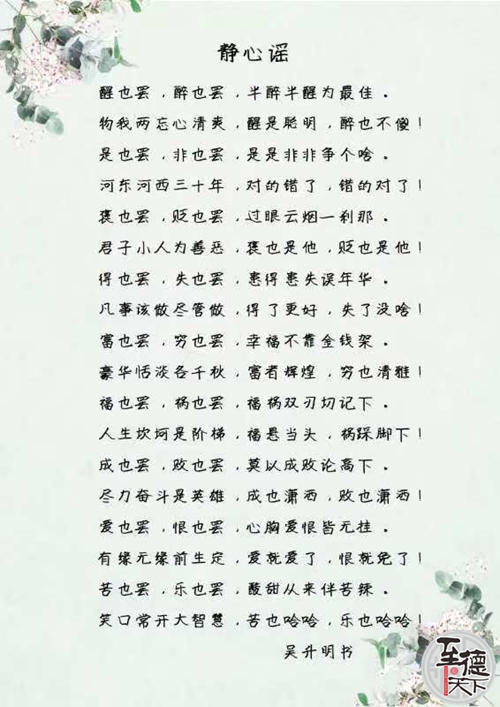 静心谣
醒也罢，醉也罢，半醉半醒为最佳。
物我两忘心清爽，醒是聪明，醉也不傻！
是也罢，非也罢，是是非非争个啥。
河东河西三十年，对的错了，错的对了！
褒也罢，贬也罢，过眼云烟一刹那。
君子小人为善恶，褒也是他，贬也是他！
得也罢，失也罢，患得患失误年华。
凡事该做尽管做，得了更好，失了没啥！
富也罢，穷也罢，幸福不靠金钱架。
豪华恬淡各千秋，富者辉煌，穷也清雅！
福也罢，祸也罢，福祸双刃切记下。
人生坎坷是阶梯，福悬当头，祸踩脚下！
成也罢，败也罢，莫以成败论高下。
尽力奋斗是英雄，成也潇洒，败也潇洒！
爱也罢，恨也罢，心胸爱恨皆无挂。
有缘无缘前生定，爱就爱了，恨就免了！
苦也罢，乐也罢，酸甜从来伴苦辣。
笑口常开大智慧，苦也哈哈，乐也哈哈！
吴升明书
至德
天下